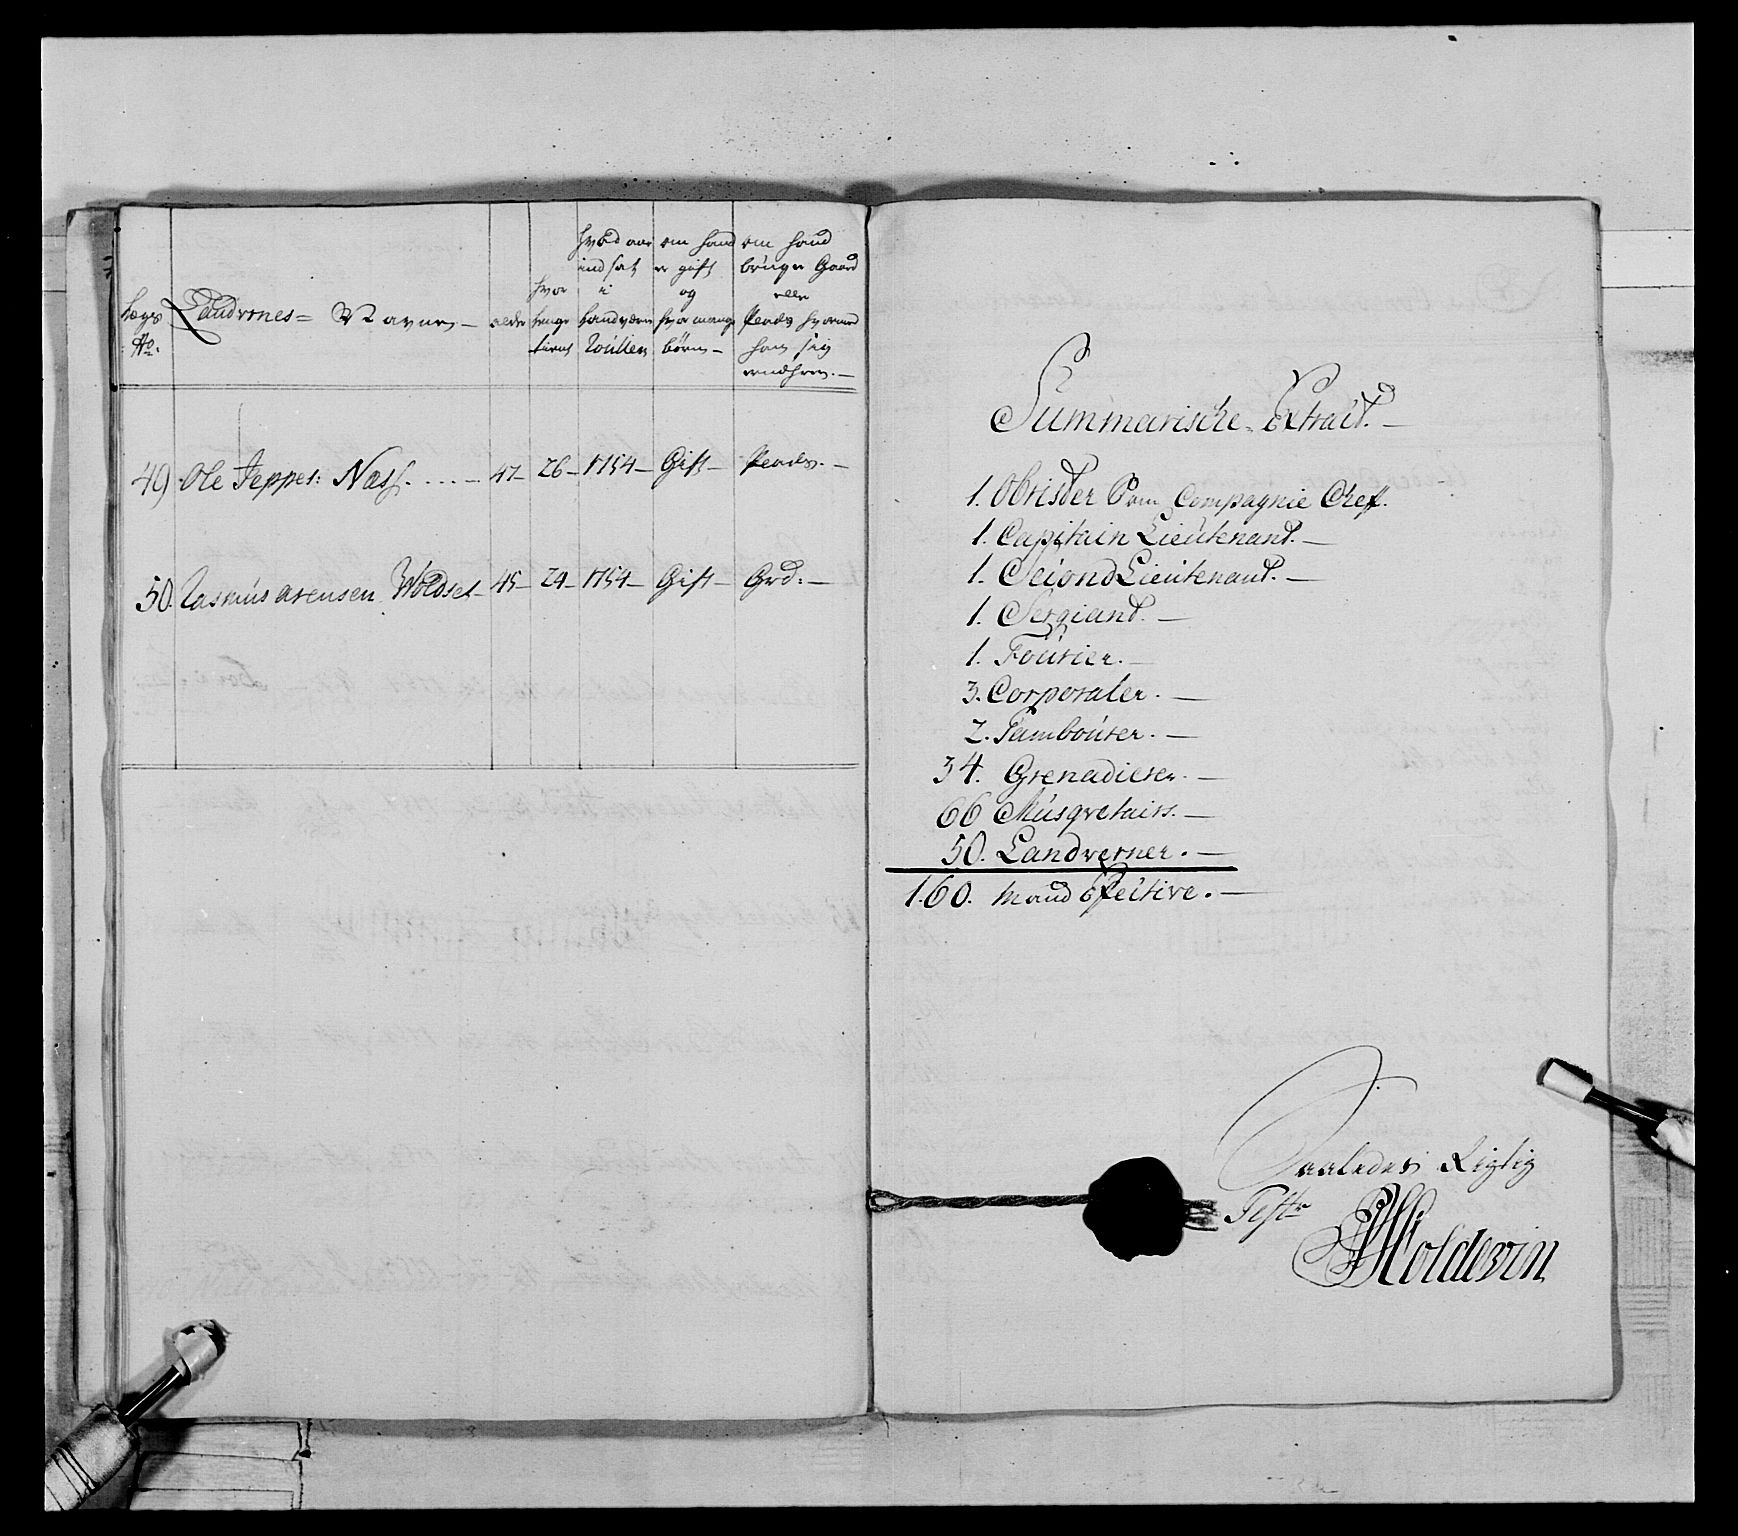 Legs No.
Landvernes= Navne.—
alder
hvor lenge tient
hvad aar ind sat i Landværn Roullen
om hand er gift og hvor mange börn—
om hand brúger Gaard eller Plads hvormed han sig ernährer.—
49) Ole Jeppes: Næss. . . . — 47— 26— 1754— Gift— Plads.—
50. Rasmús Arensen Woldset— 45— 24— 1754— Gift— Grd:—
Summarische Extract.—
1. Obrister som Compagnie Cheff.
1. Capitain Lieútenant.—
1. Second Lieutenant.—
1. Sergiant.—
1. Foúrier.—
3. Corporaler.—
2. Tamboúrer.—
34. Grenadierer.—
66 Músqvetairs.—
50. Landverner.—
160. Mand Effective.—
Saaledes Rigtig
Test
Holdevin